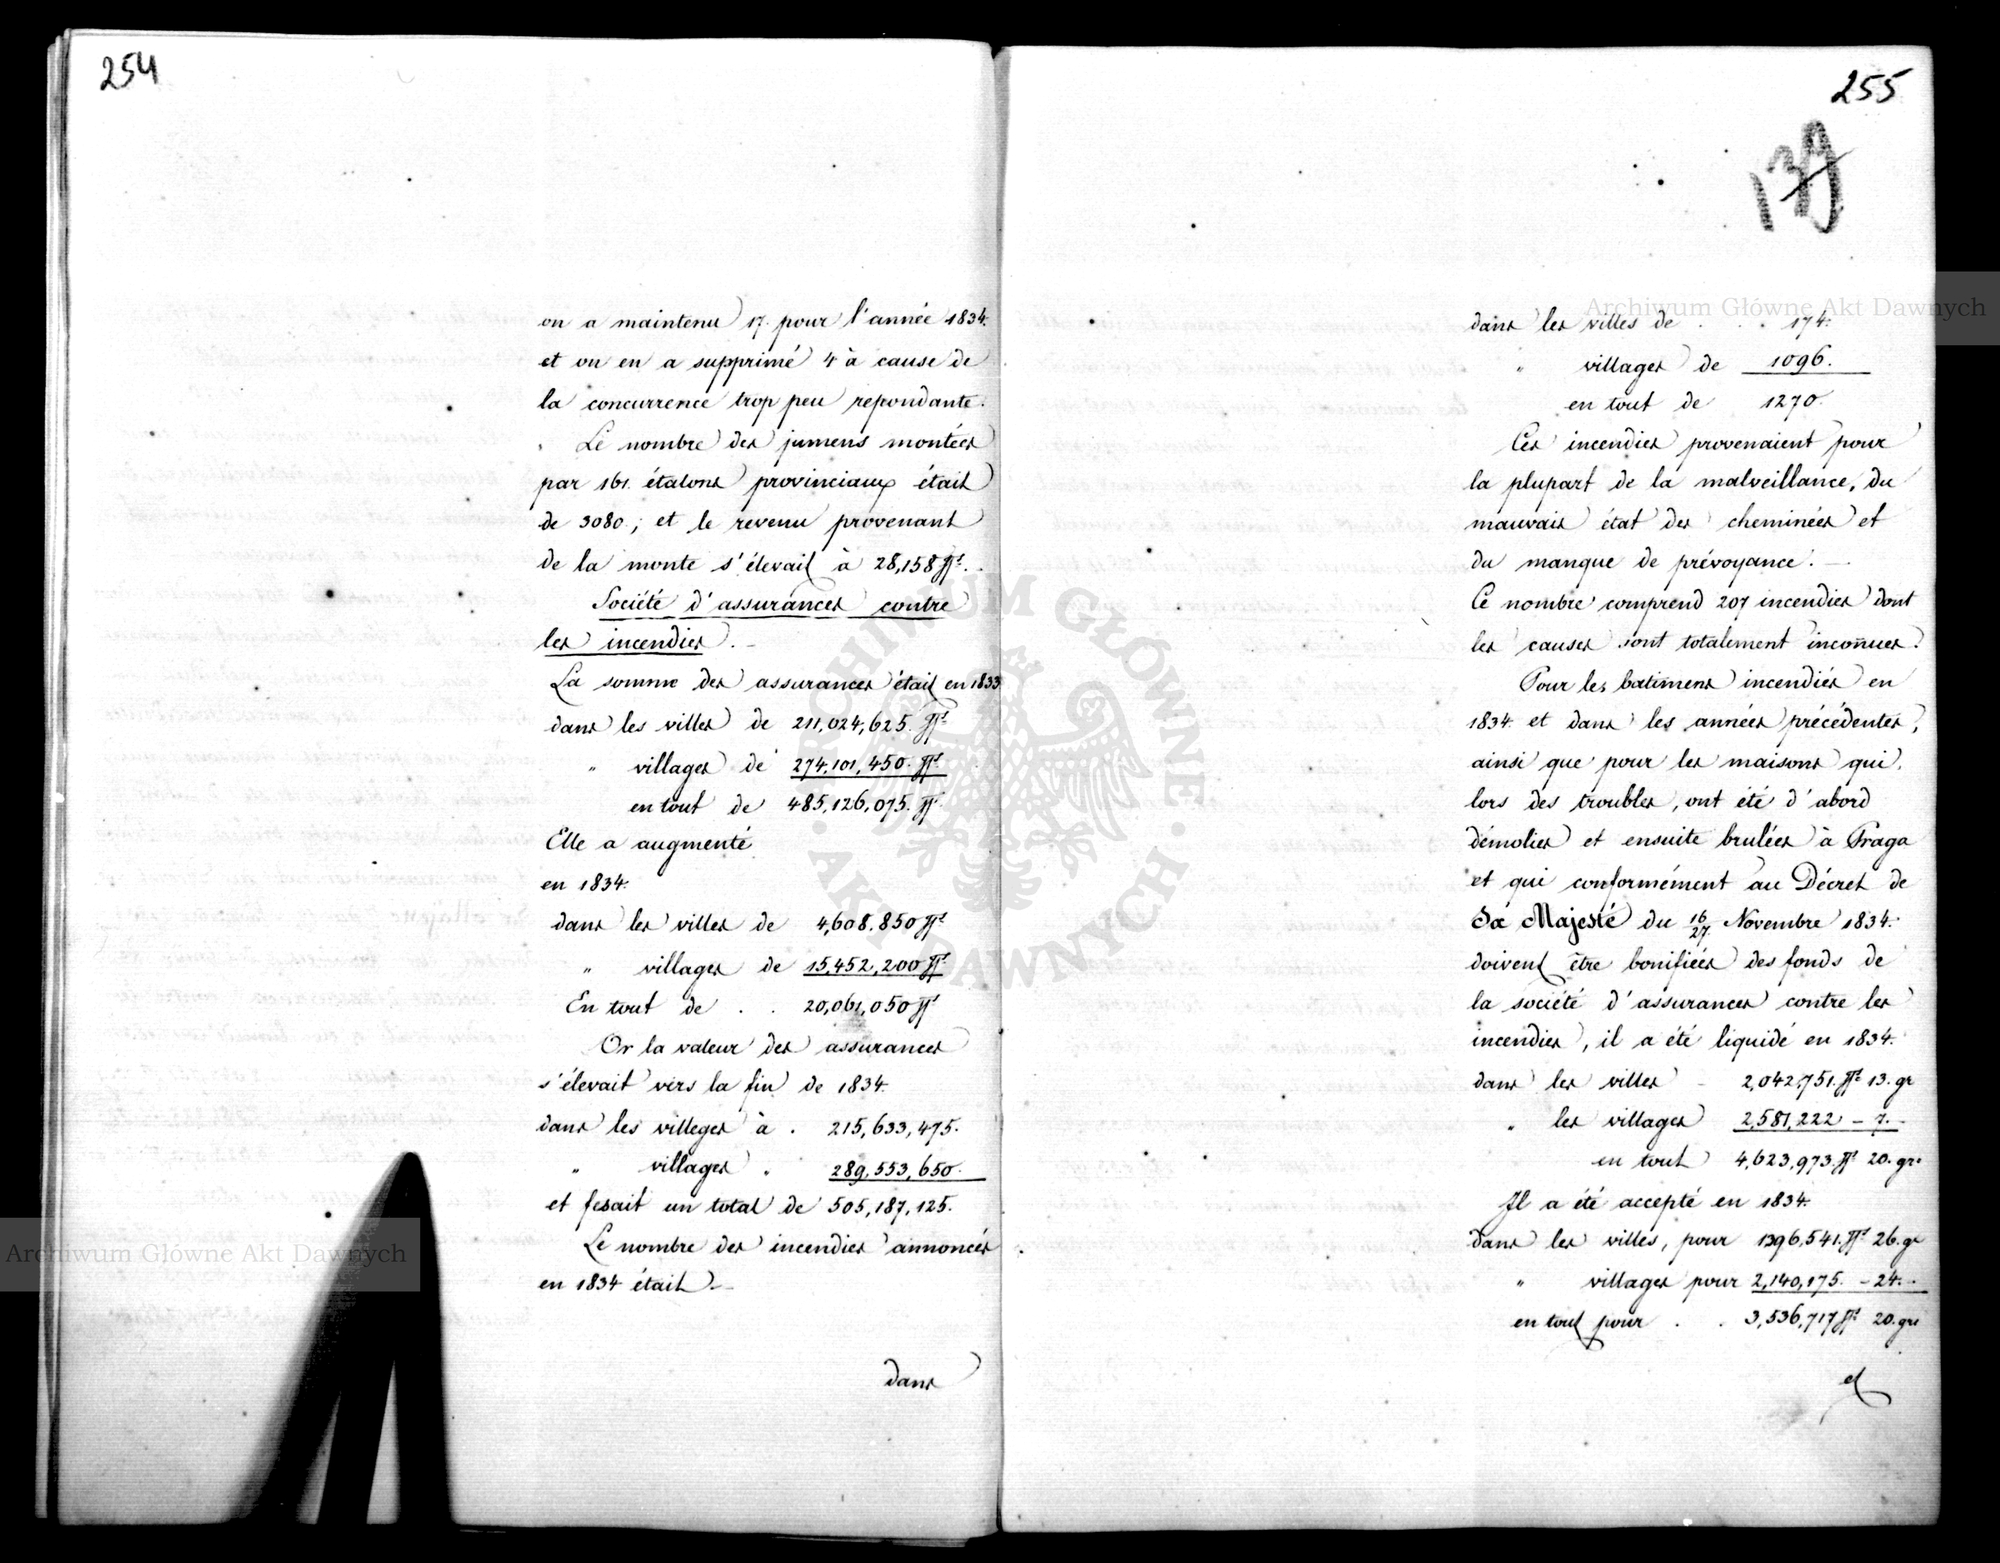 254
on a maintenu 17. pour l'année 1834.
et on en a supprimé 4 à cause de
la concurrence trop peu repondante.
Le nombre des jumens montées
par 161. étalons provinciaux était
de 3080.; et le revenu provenant
de la monte s'élevait à 28,158 fls.
Société d'assurances contre
les incendies. —
La somme des assurances était en 1833
dans les villes de 211,024,625. fls
" villages de 274,101,450. fls
en tout de 485,126,075. fls
Elle a augmenté
en 1834.
dans les villes de 4,608,850 fls
" villages de 15,452,200 fls
En tout de . . 20,061,050 fls
Or la valeur des assurances
s'élevait vers la fin de 1834.
dans les villeges à . 215,633,475.
" villages " 289,553,650.
et fesait un total de 505,187,125.
Le nombre des incendies annoncés
en 1834 était —
dans
255
139
dans les villes de . . 174.
" villages de 1096.
en tout de 1270.
Ces incendies provenaient pour
la plupart de la malveillance, du
mauvais état des cheminées et
du manque de prévoyance. —
Ce nombre comprend 207 incendies dont
les causes sont totalement inconnues.
Pour les batimens incendiés en
1834. et dans les années précédentes,
ainsi que pour les maisons qui,
lors des troubles, ont été d'abord
démolies et ensuite brulées à Praga
et qui conformément au Décret de
Sa Majesté du 16/27 Novembre 1834.
doivent être bonifiées des fonds de
la société d'assurances contre les
incendies, il a été liquidé en 1834.
dans les villes - 2,042,751. fls 13. gr
" les villages 2,581,222 - 7. -
en tout 4,623,973. fls 20. grs
Il a été accepté en 1834.
dans les villes, pour 1396,541. fls 26. gr
" villages pour 2,140,175. - 24. -
en tout pour . . 3,536,717 fls 20. grs
et
Archiwum Główne Akt Dawnych
Archiwum Główne Akt Dawnych
ARCHIWUM GŁÓWNE · AKT DAWNYCH ·